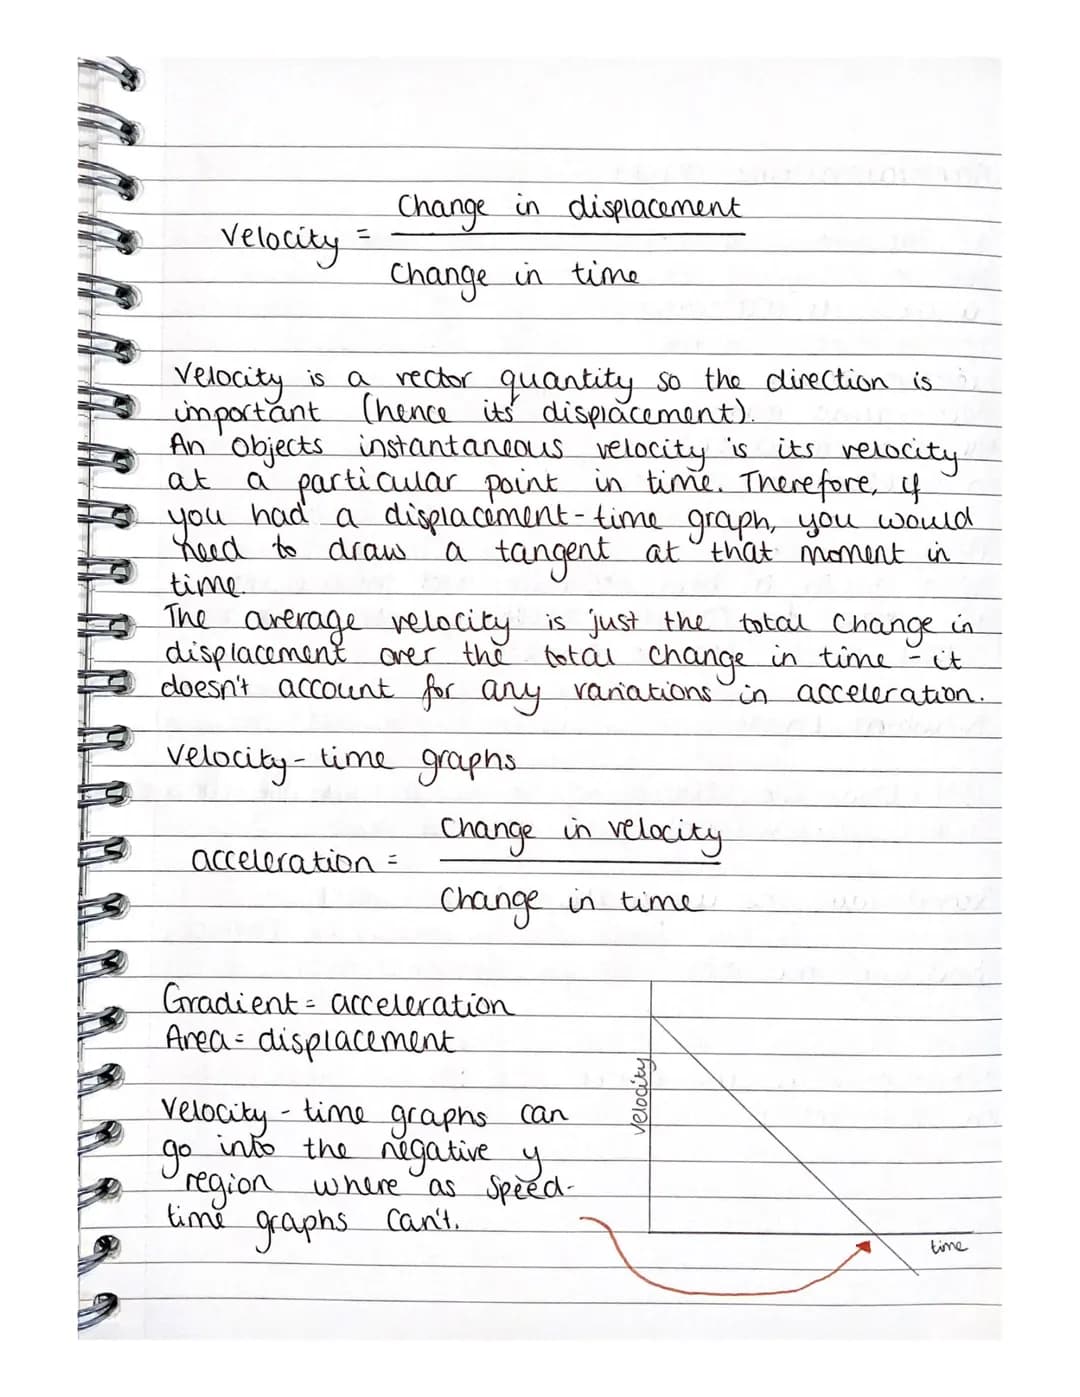 Velocity = Change in displacement
Change in time
Velocity is a vector quantity so the direction is
important (hence its displacement).
An objects instantaneous velocity is its velocity
at a particular point in time. Therefore, if
you had a displacement-time graph, you would
need to draw a tangent at that moment in
time.
The average velocity is just the total change in
displacement over the total change in time - it
doesn't account for any variations in acceleration.
Velocity-time graphs
acceleration = Change in velocity
Change in time
Gradient = acceleration
Area = displacement
Velocity-time graphs can
go into the negative y
region where as speed-
time graphs can't.
Velocity
time